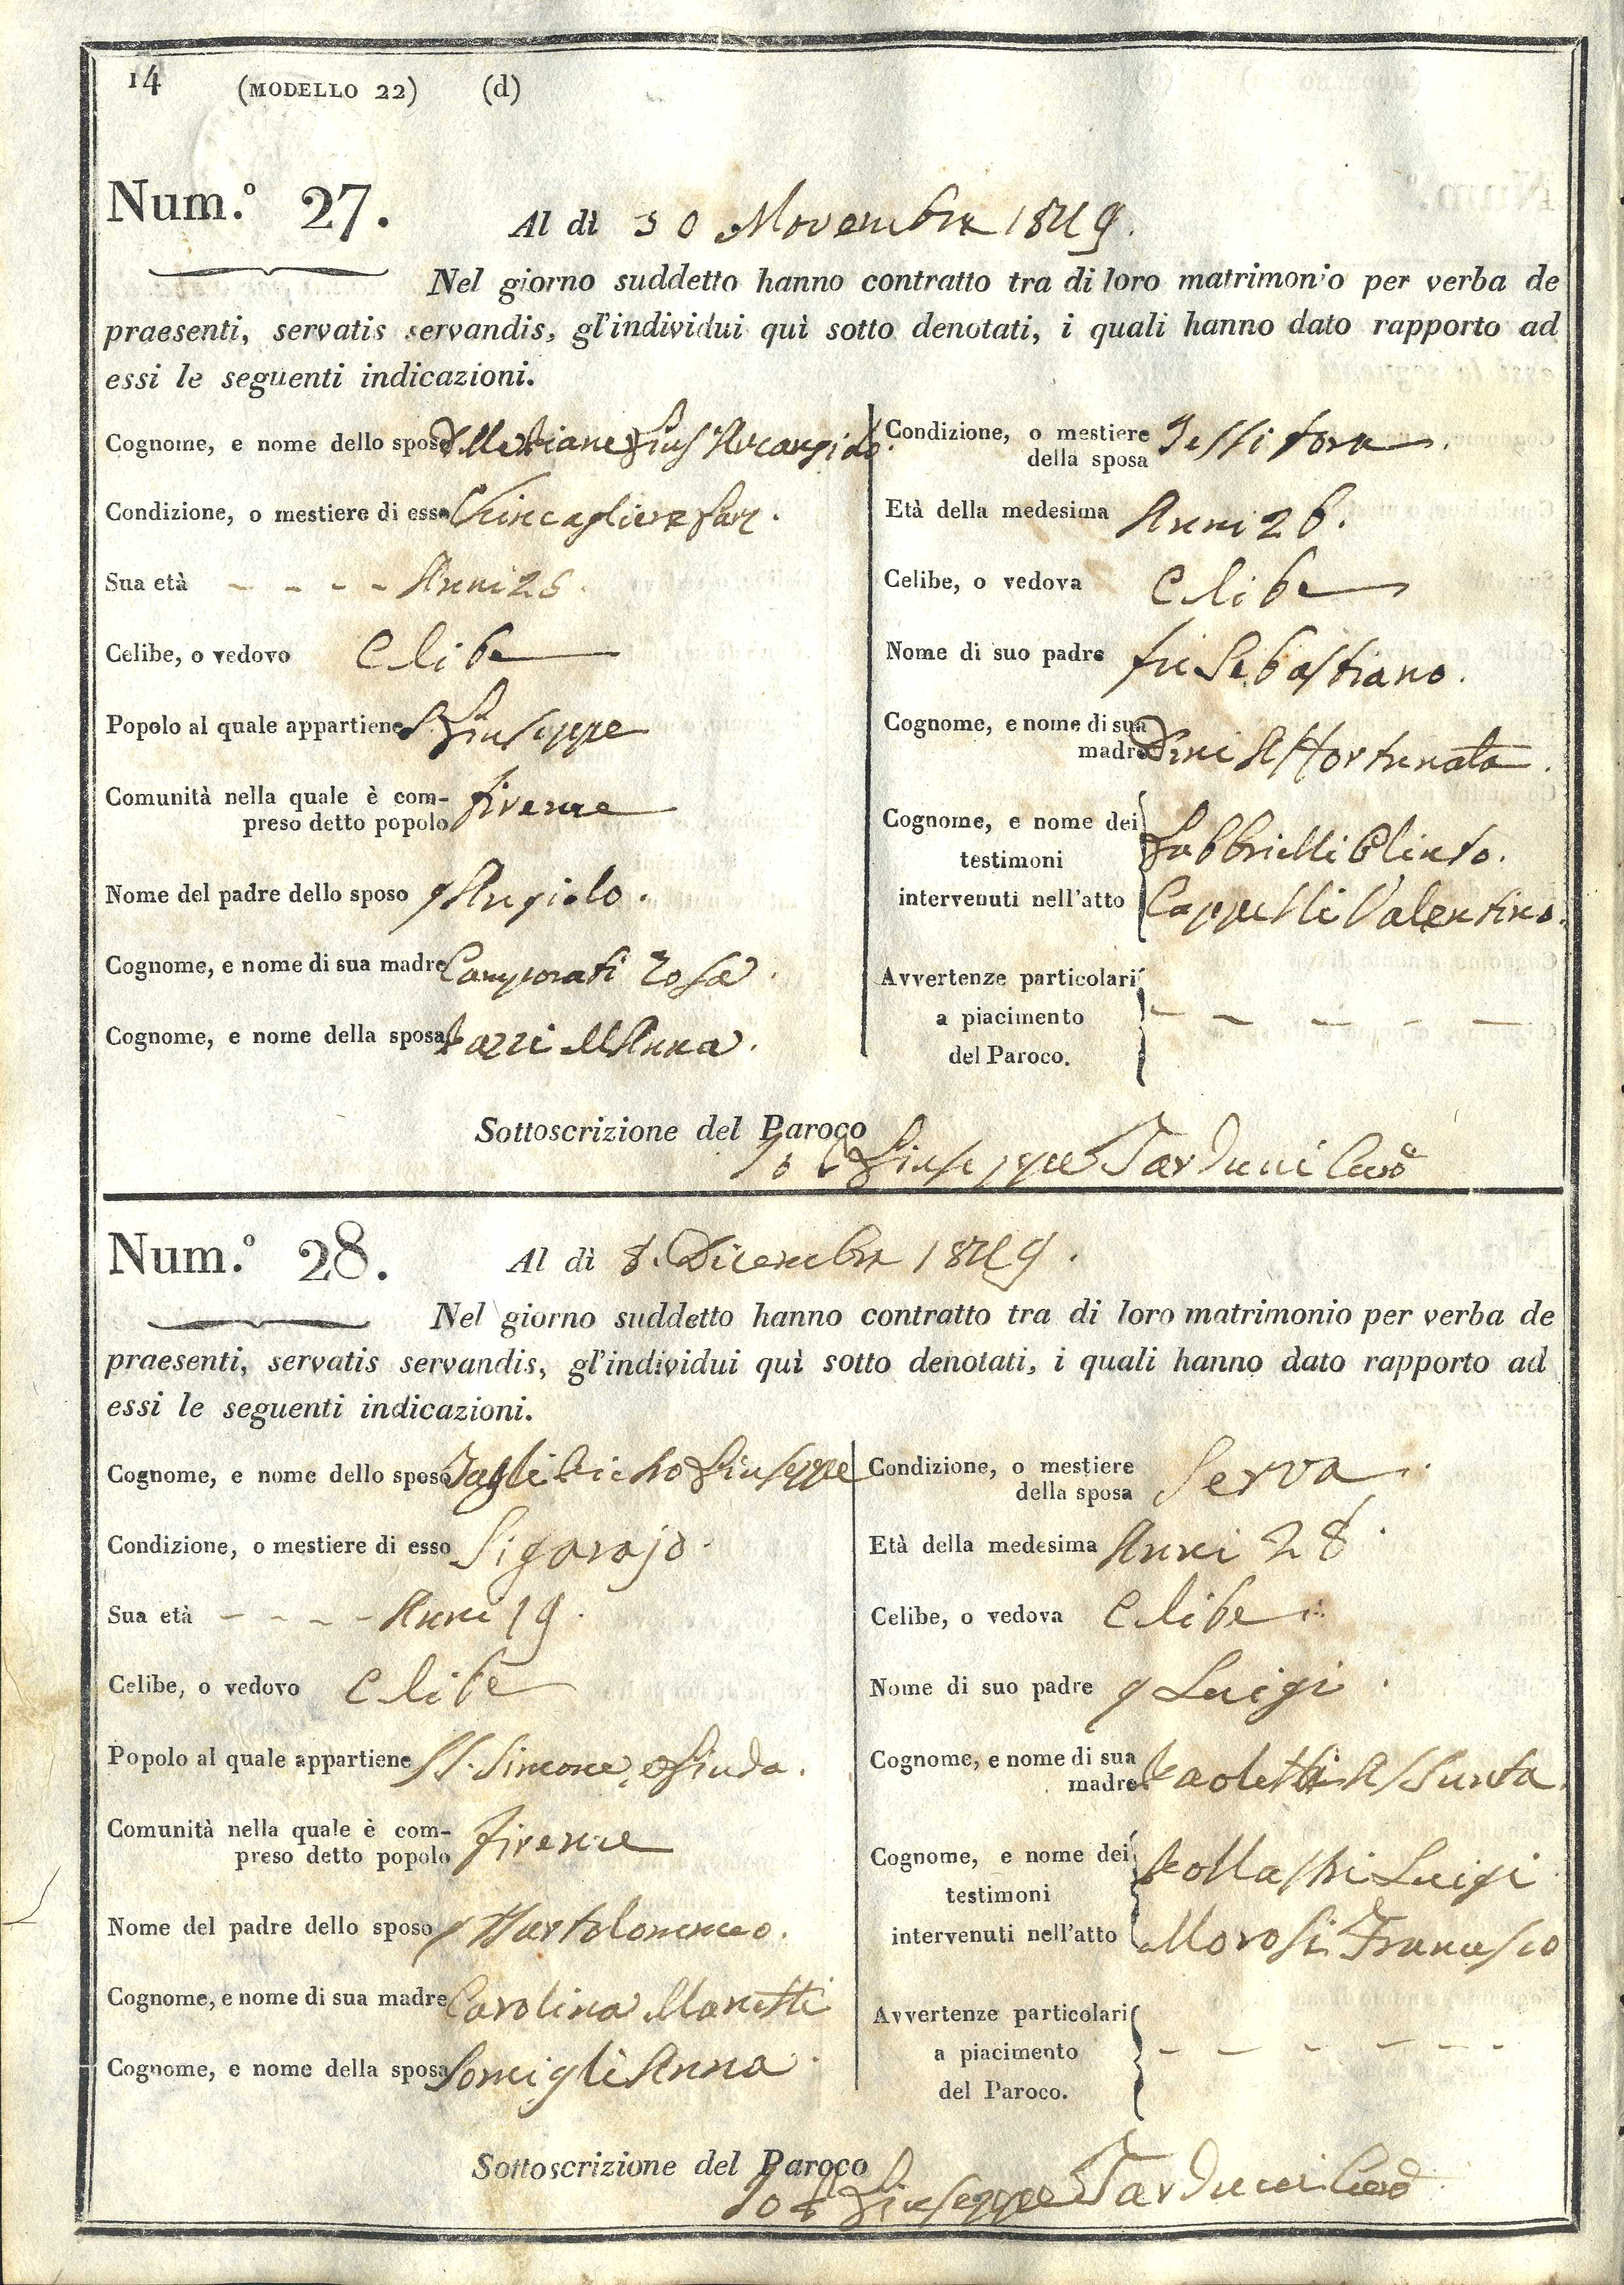 14 (MODELLO 22) (d)
Num.º 27.
Al dì 30 Novembre 1849.
Nel giorno suddetto hanno contratto tra di loro matrimonio per verba de
praesenti, servatis servandis, gl'individui quì sotto denotati, i quali hanno dato rapporto ad
essi le seguenti indicazioni.
Cognome, e nome dello sposo
Condizione, o mestiere di esso Chincagliere
Sua età - - - - Anni 26.
Celibe, o vedovo Celibe
Popolo al quale appartiene S. Giuseppe
Comunità nella quale è com-
preso detto popolo firenze
Nome del padre dello sposo q Angiolo.
Cognome, e nome di sua madre Camporati Rosa.
Cognome, e nome della sposa M Anna.
Condizione, o mestiere
della sposa Tessitora.
Età della medesima Anni 26.
Celibe, o vedova Celibe
Nome di suo padre fu Sebastiano.
Cognome, e nome di sua
madre Dini
Cognome, e nome dei
testimoni Gabbrielli Olinto.
intervenuti nell'atto Cappelli Valentino.
Avvertenze particolari
a piacimento - - - - -
del Paroco.
Sottoscrizione del Paroco
Io Giuseppe Tarducci Curº
Num.º 28.
Al dì 8. Dicembre 1849.
Nel giorno suddetto hanno contratto tra di loro matrimonio per verba de
praesenti, servatis servandis, gl'individui quì sotto denotati, i quali hanno dato rapporto ad
essi le seguenti indicazioni.
Cognome, e nome dello sposo Giuseppe
Condizione, o mestiere di esso Sigarajo.
Sua età - - - - Anni 19.
Celibe, o vedovo Celibe
Popolo al quale appartiene SS. Simone, e Giuda.
Comunità nella quale è com-
preso detto popolo firenze
Nome del padre dello sposo q Bartolommeo.
Cognome, e nome di sua madre Carolina Manetti
Cognome, e nome della sposa Somigli Anna.
Condizione, o mestiere
della sposa Serva.
Età della medesima Anni 28.
Celibe, o vedova Celibe
Nome di suo padre q Luigi.
Cognome, e nome di sua
madre Paoletti Assunta.
Cognome, e nome dei
testimoni Pollastri Luigi
intervenuti nell'atto Morosi Francesco
Avvertenze particolari
a piacimento - - - - - -
del Paroco.
Sottoscrizione del Paroco
Io Giuseppe Tarducci Curº